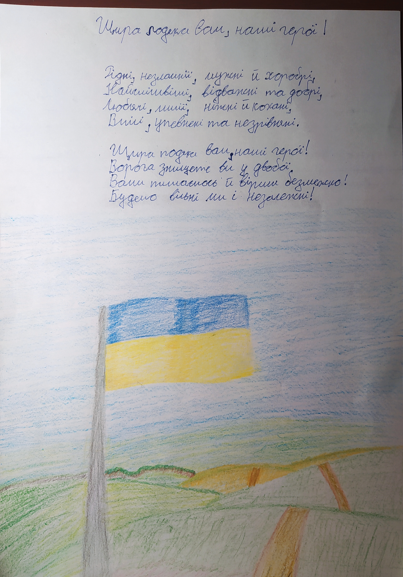 Щира подяка вам, наші герої!
Гідні, незламні, мужні й хоробрі,
Найсміливіші, відважні та добрі,
Люблячі, милі, ніжні й кохані,
Вмілі, упевнені та незрівняні.
Щира подяка вам, наші герої!
Ворога знищете ви у двобої.
Вами пишаємось й віримо безмежно!
Будемо вільні ми і незалежні!